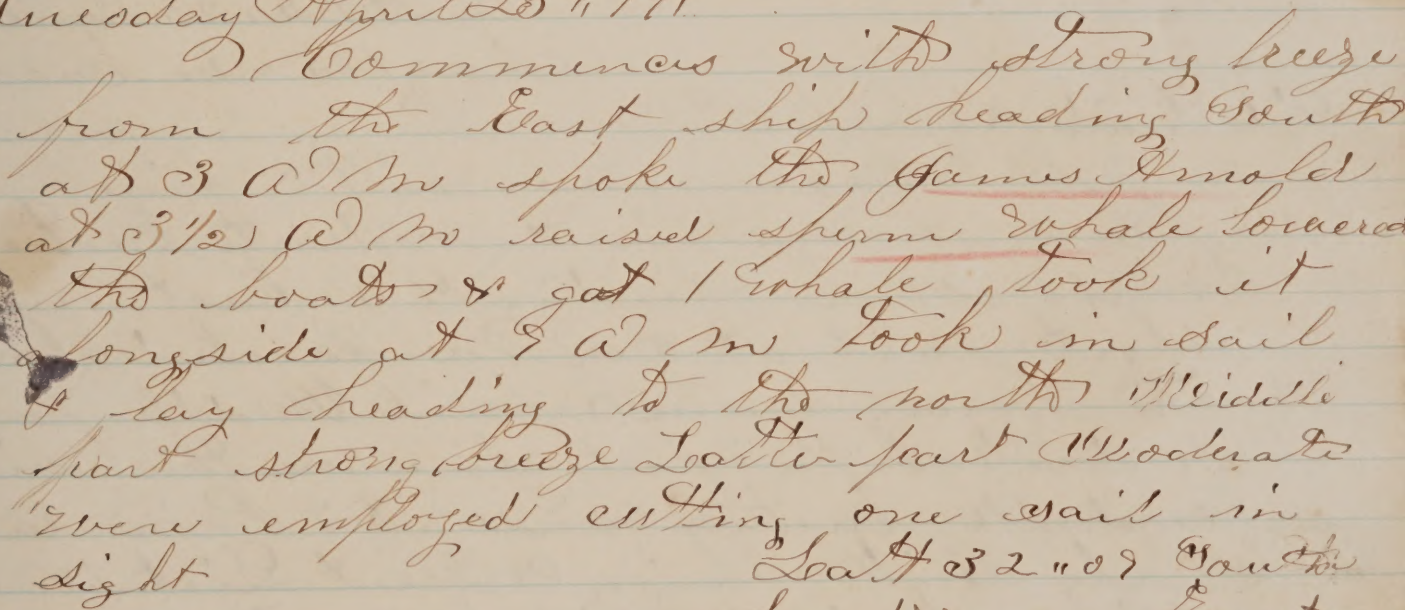 Tuesday April 25
Commences with strong breeze
from the East ship heading South
at 3 A M spoke the James Arnold
at 3 1/2 A M raised sperm whale lowered
the boats & got 1 whale took it
alongside at 9 A M took in sail
& lay heading to the north Middle
part strong breeze Latter part Moderate
were employed cutting one sail in
sight Latt 32 " 09 South